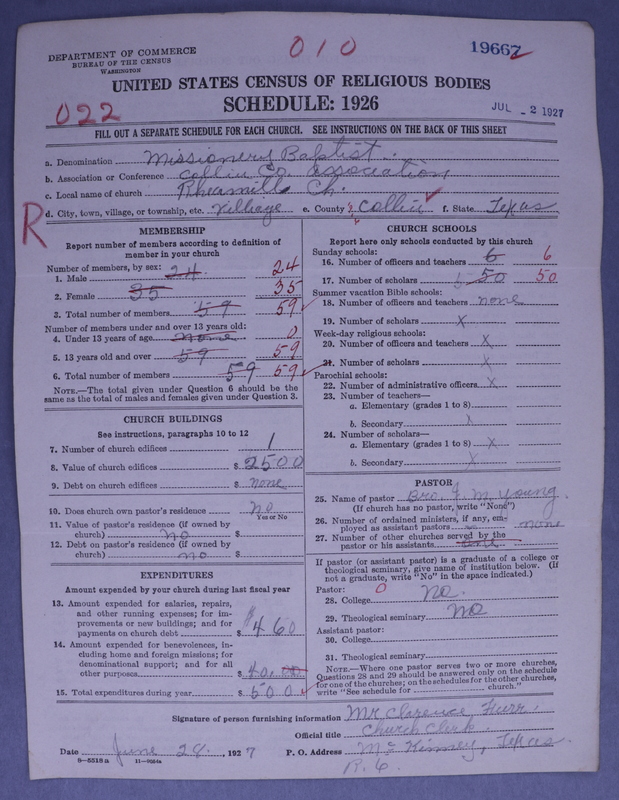 DEPARTMENT OF COMMERCE
BUREAU OF THE CENSUS
WASHINGTON
010
19667
UNITED STATES CENSUS OF RELIGIOUS BODIES
SCHEDULE: 1926
022
JUL - 2 1927
FILL OUT A SEPARATE SCHEDULE FOR EACH CHURCH. SEE INSTRUCTIONS ON THE BACK OF THIS SHEET
a. Denomination Missionery Baptist
b. Association or Conference Collin Co. association
c. Local name of church Rheamills Ch.
R
d. City, town, village, or township, etc. Village e. County Collin f. State Texas
MEMBERSHIP
Report number of members according to definition of member in your church
Number of members, by sex:
1. Male 24 24
2. Female 35 35
3. Total number of members 59 59
Number of members under and over 13 years old:
4. Under 13 years of age none 0
5. 13 years old and over 59 59
6. Total number of members 59 59
NOTE.—The total given under Question 6 should be the same as the total of males and females given under Question 3.
CHURCH BUILDINGS
See instructions, paragraphs 10 to 12
7. Number of church edifices 1
8. Value of church edifices $ 2500
9. Debt on church edifices $ none
10. Does church own pastor's residence no
Yes or No
11. Value of pastor's residence (if owned by church) no $
12. Debt on pastor's residence (if owned by church) no $
EXPENDITURES
Amount expended by your church during last fiscal year
13. Amount expended for salaries, repairs, and other running expenses; for improvements or new buildings; and for payments on church debt $ 460
14. Amount expended for benevolences, including home and foreign missions; for denominational support; and for all other purposes $ 40
15. Total expenditures during year $ 500
CHURCH SCHOOLS
Report here only schools conducted by this church
Sunday schools:
16. Number of officers and teachers 6 6
17. Number of scholars 50 50
Summer vacation Bible schools:
18. Number of officers and teachers none
19. Number of scholars X
Week-day religious schools:
20. Number of officers and teachers X
21. Number of scholars X
Parochial schools:
22. Number of administrative officers X
23. Number of teachers—
a. Elementary (grades 1 to 8)
b. Secondary X
24. Number of scholars—
a. Elementary (grades 1 to 8) X
b. Secondary X
PASTOR
25. Name of pastor Bro. J. M. Young
(If church has no pastor, write "None")
26. Number of ordained ministers, if any, employed as assistant pastors none
27. Number of other churches served by the pastor or his assistants one
If pastor (or assistant pastor) is a graduate of a college or theological seminary, give name of institution below. (If not a graduate, write "No" in the space indicated.)
Pastor: 0
28. College no.
29. Theological seminary no
Assistant pastor:
30. College
31. Theological seminary
NOTE.—Where one pastor serves two or more churches, Questions 28 and 29 should be answered only on the schedule for one of the churches; on the schedules for the other churches, write "See schedule for church."
Signature of person furnishing information Mr. Clarence Furr.
Official title Church Clerk.
Date June 28, 1927 P. O. Address Mc Kinney, Texas.
8—5518a 11—9664a
R. 6.